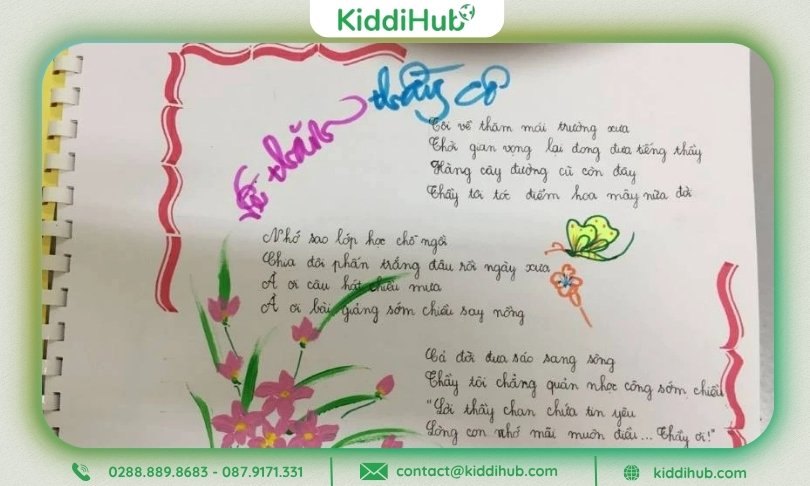 KiddiHub
Về thăm thầy cô
Tôi về thăm mái trường xưa
Thời gian vọng lại đong đưa tiếng thầy
Hàng cây đường cũ còn đây
Thầy tôi tóc điểm hoa mây nửa đời
Nhớ sao lớp học chỗ ngồi
Chia đôi phấn trắng đâu rồi ngày xưa
À ơi câu hát chiều mưa
À ơi bài giảng sớm chiều say nồng
Cả đời đưa sáo sang sông
Thầy tôi chẳng quản nhọc công sớm chiều
"Lời thầy chan chứa tin yêu
Lòng con nhớ mãi muôn điều... Thầy ơi!"
0288.889.8683 - 087.9171.331
contact@kiddihub.com
kiddihub.com